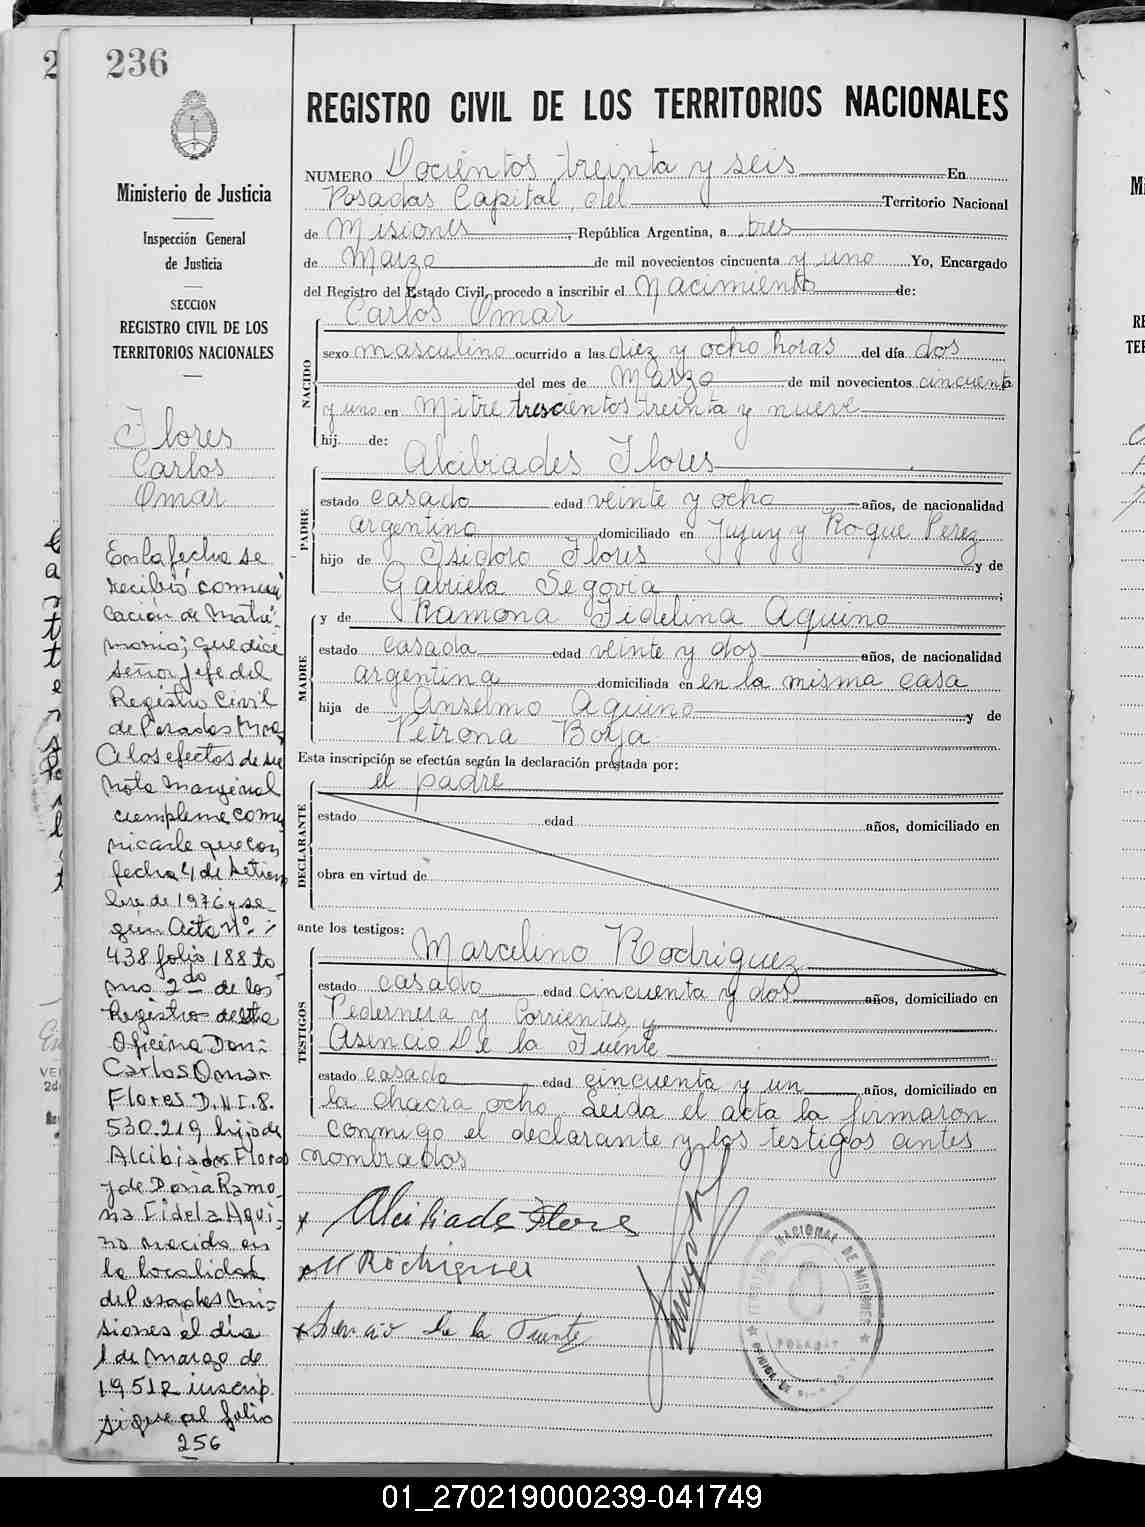 236
Ministerio de Justicia
Inspección General
de Justicia
SECCION
REGISTRO CIVIL DE LOS
TERRITORIOS NACIONALES
Flores
Carlos
Omar
En la fecha se
recibió comuni
cación de Matri-
monio; que dice
señor jefe del
Registro Civil
de Posadas Mnes
A los efectos de su
Nota Marginal
cumpleme comu
nicarle que con
fecha 4 de Setiem
bre de 1976 y se
gún Acta Nº
438 folio 188 to
mo 2do de los
Registros de esta
Oficina Don:
Carlos Omar
Flores D.N.I. 8.
530.219 hijo de
Alcibiades Flores
y de Doña Ramo
na Fidela Aqui-
no nacido en
la localidad
de Posadas Mi-
siones el día
1 de Marzo de
1951 inscrip.
sigue al folio
256
REGISTRO CIVIL DE LOS TERRITORIOS NACIONALES
NUMERO Docientos treinta y seis En
Posadas Capital del Territorio Nacional
de Misiones, República Argentina, a tres
de Marzo de mil novecientos cincuenta y uno Yo, Encargado
del Registro del Estado Civil, procedo a inscribir el Nacimiento de:
Carlos Omar
NACIDO
sexo masculino ocurrido a las diez y ocho horas del día dos
del mes de Marzo de mil novecientos cincuenta
y uno en Mitre trescientos treinta y nueve
hij de:
Alcibiades Flores
PADRE
estado casado edad veinte y ocho años, de nacionalidad
argentino domiciliado en Jujuy y Roque Perez
hijo de Isidoro Flores y de
Gabriela Segovia;
y de Ramona Fidelina Aquino
MADRE
estado casada edad veinte y dos años, de nacionalidad
argentina domiciliada en en la misma casa
hija de Anselmo Aquino y de
Petrona Borja
Esta inscripción se efectúa según la declaración prestada por:
el padre
DECLARANTE
estado edad años, domiciliado en
obra en virtud de
ante los testigos:
Marcelino Rodriguez
TESTIGOS
estado casado edad cincuenta y dos años, domiciliado en
Pedernera y Corrientes y
Asencio De la Fuente
estado casado edad cincuenta y un años, domiciliado en
la chacra ocho. Leida el acta la firmaron
conmigo el declarante y los testigos antes
nombrados
x Alcibiade Flores
x M Rodriguez
x Asencio de la Fuente
TERRITORIO NACIONAL DE MISIONES
POSADAS
01_270219000239-041749